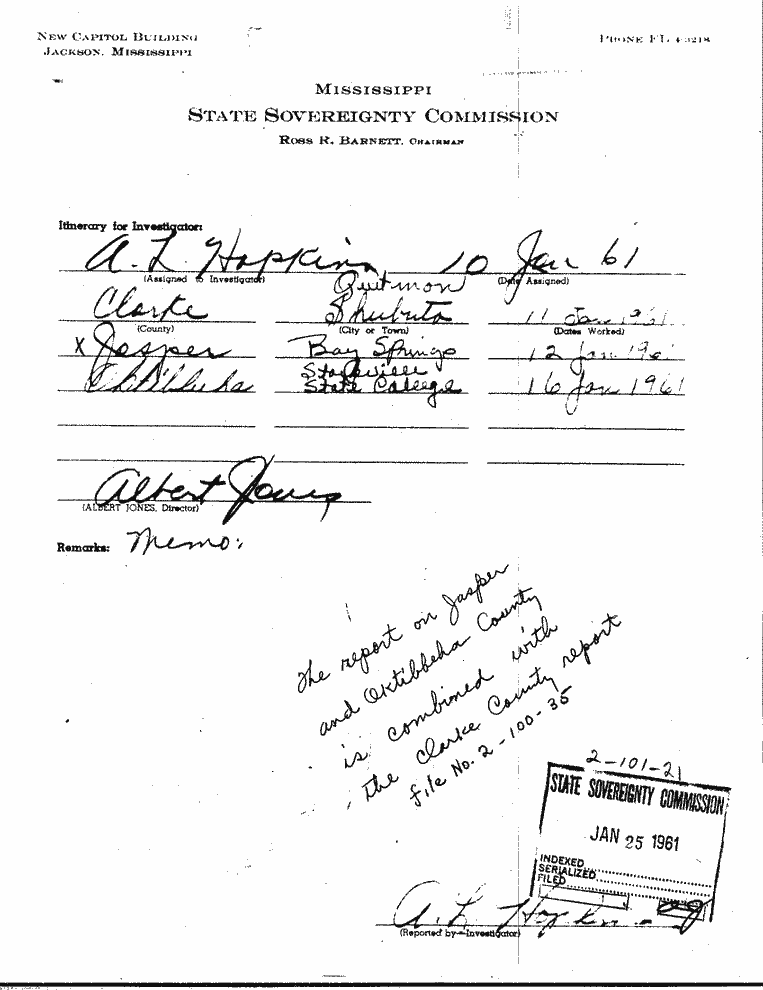 NEW CAPITOL BUILDING
JACKSON, MISSISSIPPI
PHONE FL 4-3218
MISSISSIPPI
STATE SOVEREIGNTY COMMISSION
ROSS R. BARNETT, CHAIRMAN
Itinerary for Investigator:
A. L. Hopkins 10 Jan 61
(Assigned to Investigator) (Date Assigned)
Quitman
Clarke Shubuta 11 Jan 1961
(County) (City or Town) (Dates Worked)
x Jasper Bay Springs 12 Jan 196
Starkville
Oktibbeha State College 16 Jan 1961
Albert Jones
(ALBERT JONES, Director)
Remarks: Memo:
The report on Jasper
and Oktibbeha County
is combined with
the Clarke County report
file No. 2-100-35
2-101-21
STATE SOVEREIGNTY COMMISSION
JAN 25 1961
INDEXED
SERIALIZED
FILED
A. L. Hopkins
(Reported by—Investigator)